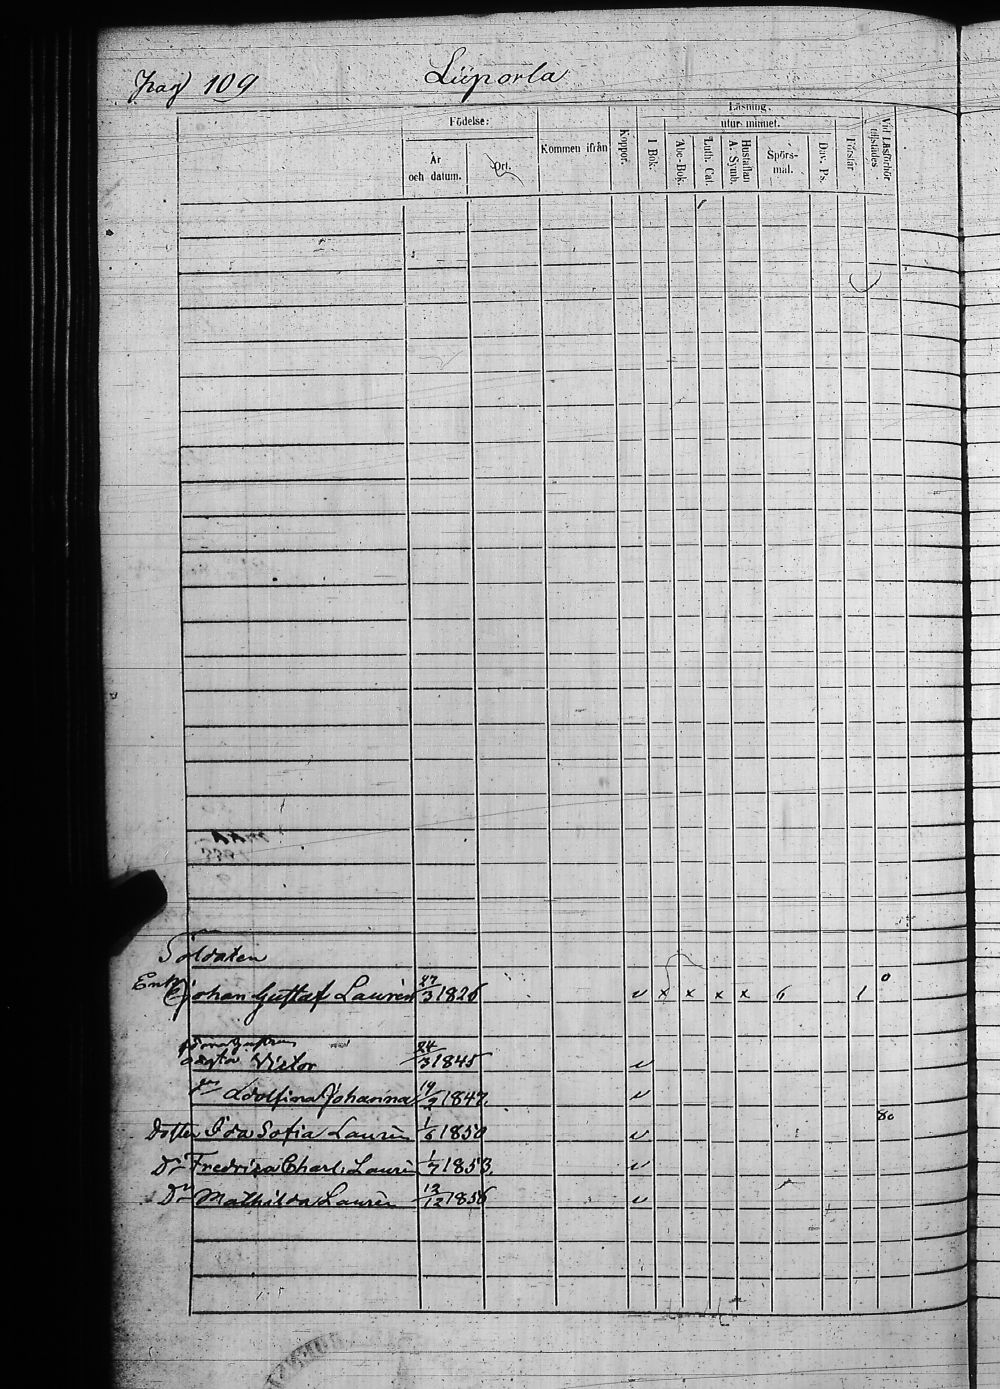 Pag 109 Liiporla
Födelse:
År och datum.
Ort.
Kommen ifrån
Koppor.
Läsning.
utur minnet.
I Bok.
Abc-Bok.
Luth. Cat.
Hustaflan A. Symb.
Spörs-mål.
Dav. Ps.
Förstår
Vid Läsförhör tillstädes
Soldaten
Enkl Johan Gustaf Laurén 27/3 1826 v x x x x 6 1 0
Victor 24/3 1845 v
Adolfina Johanna 1847. v
Dotter Ida Sofia Laurén 1/6 1850 v 80
Dr Fredrica Charl. Laurén 1/7 1853. v
Dr Mathilda Laurén 12/12 1856 v